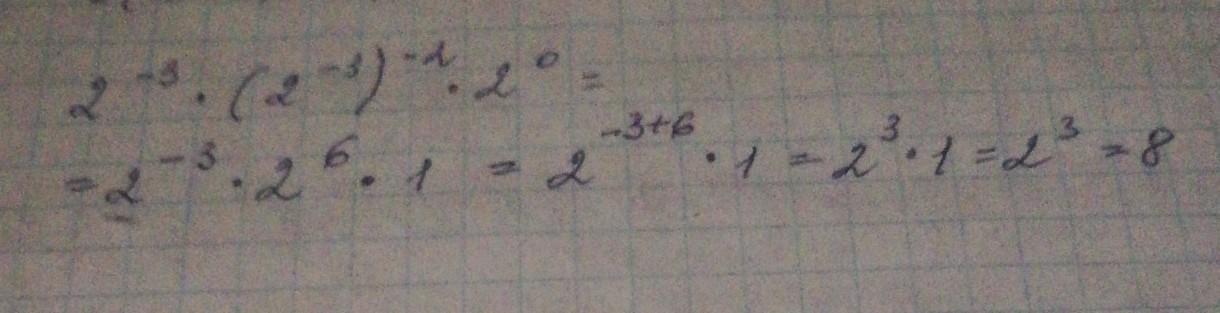 2⁻³ · (2⁻³)⁻² · 2⁰ =
= 2⁻³ · 2⁶ · 1 = 2⁻³⁺⁶ · 1 = 2³ · 1 = 2³ = 8